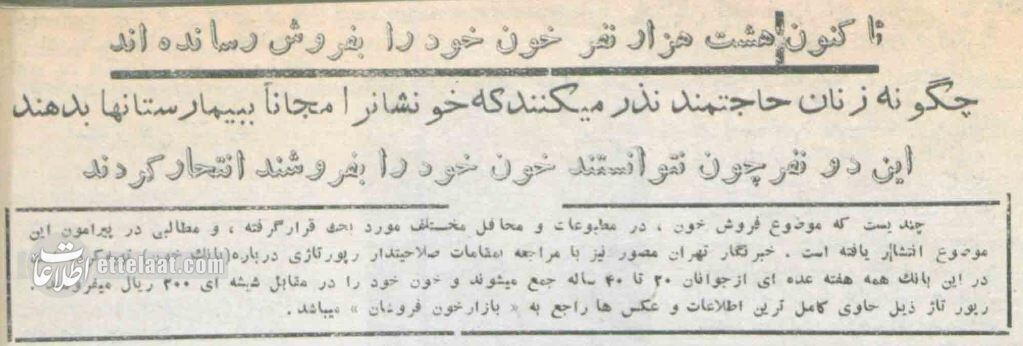 تا کنون هشت هزار نفر خون خود را بفروش رسانده اند
چگونه زنان حاجتمند نذر میکنند که خونشانرا مجاناً ببیمارستانها بدهند
این دو نفر چون نتوانستند خون خود را بفروشند انتحار کردند
چندیست که موضوع فروش خون ، در مطبوعات و محافل مختلف مورد بحث قرار گرفته ، و مطالبی در پیرامون این
موضوع انتشار یافته است . خبرنگار تهران مصور نیز با مراجعه بمقامات صلاحیتدار رپورتاژی درباره (بانک
در این بانک همه هفته عده ای از جوانان ۲۰ تا ۴۰ ساله جمع میشوند و خون خود را در مقابل شیشه ای ۲۰۰ ریال
رپور تاژ ذیل حاوی کامل ترین اطلاعات و عکس ها راجع به « بازار خون فروشان » میباشد .
اطلاعات ettelaat.com